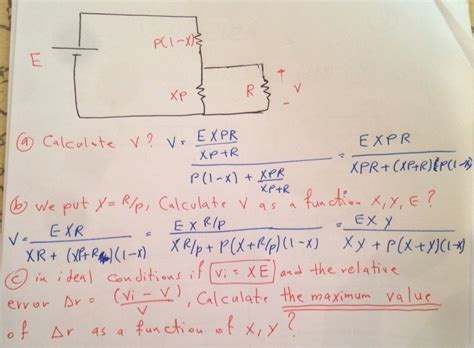 P(1-X)
E
XP
R
+
V
-
(a) Calculate V? V = \frac{\frac{EXPR}{XP+R}}{P(1-X) + \frac{XPR}{XP+R}} = \frac{EXPR}{XPR+(XP+R)P(1-X)}
(b) we put Y = R/P, Calculate V as a function X, Y, E?
V = \frac{EXR}{XR + (XP+R)(1-X)} = \frac{EX R/P}{XR/P + P(X+R/P)(1-X)} = \frac{EXY}{XY + P(X+Y)(1-X)}
(c) in ideal conditions if Vi = XE and the relative
error Δr = \frac{(Vi - V)}{V}, Calculate the maximum value
of Δr as a function of X, Y?